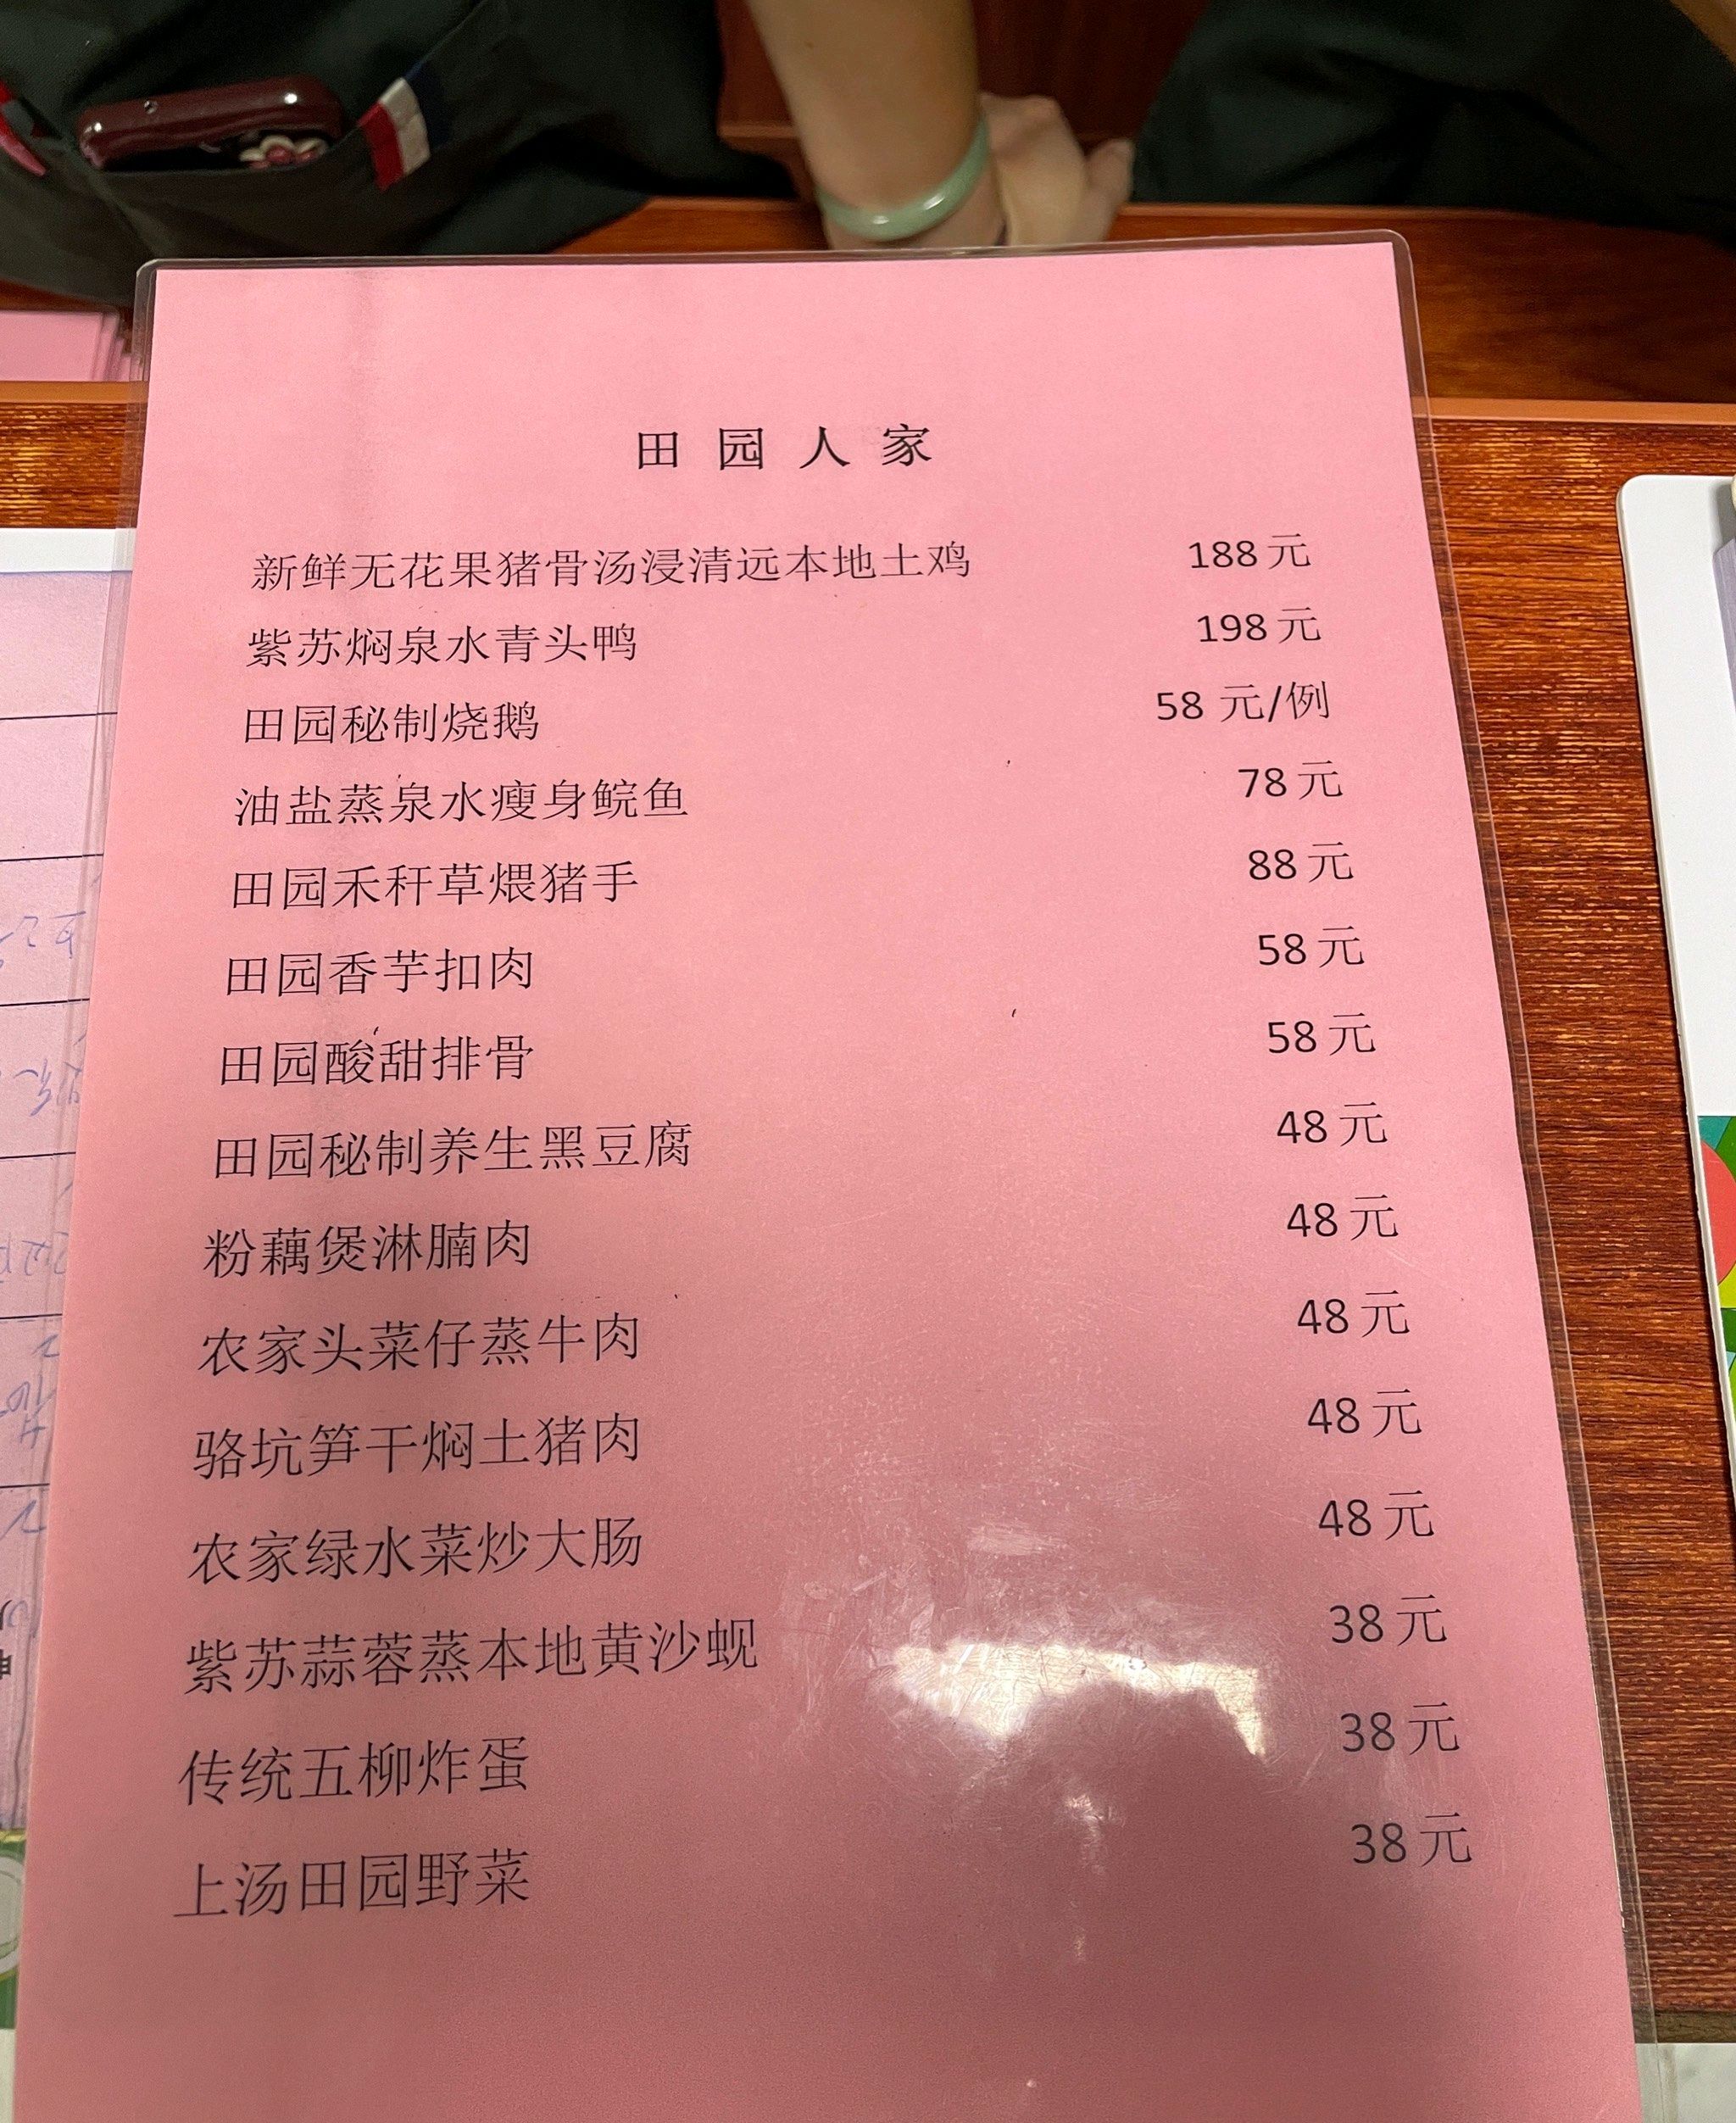 田园人家
新鲜无花果猪骨汤浸清远本地土鸡 188元
紫苏焖泉水青头鸭 198元
田园秘制烧鹅 58 元/例
油盐蒸泉水瘦身鲩鱼 78元
田园禾秆草煨猪手 88元
田园香芋扣肉 58元
田园酸甜排骨 58元
田园秘制养生黑豆腐 48元
粉藕煲淋腩肉 48元
农家头菜仔蒸牛肉 48元
骆坑笋干焖土猪肉 48元
农家绿水菜炒大肠 48元
紫苏蒜蓉蒸本地黄沙蚬 38元
传统五柳炸蛋 38元
上汤田园野菜 38元